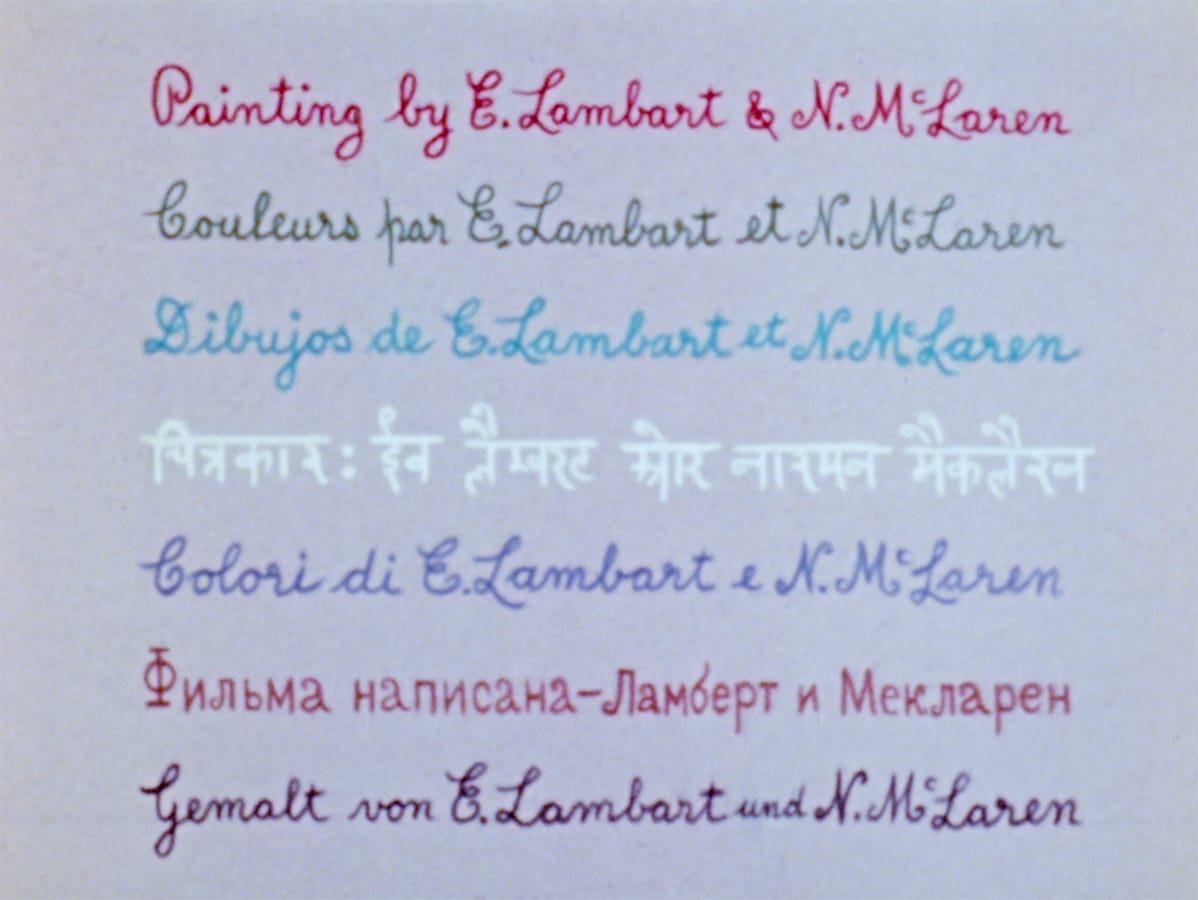 Painting by E. Lambart & N. McLaren
Couleurs par E. Lambart et N. McLaren
Dibujos de E. Lambart et N. McLaren
चित्रकार : ईव लैम्बरट और नारमन मैकलैरन
Colori di E. Lambart e N. McLaren
Фильма написана-Ламберт и Мекларен
Gemalt von E. Lambart und N. McLaren